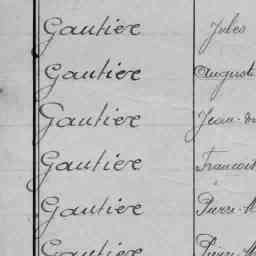 Gautier Jules
Gautier Auguste
Gautier Jean-
Gautier François
Gautier Pierre-M
Gautier Pierre-M